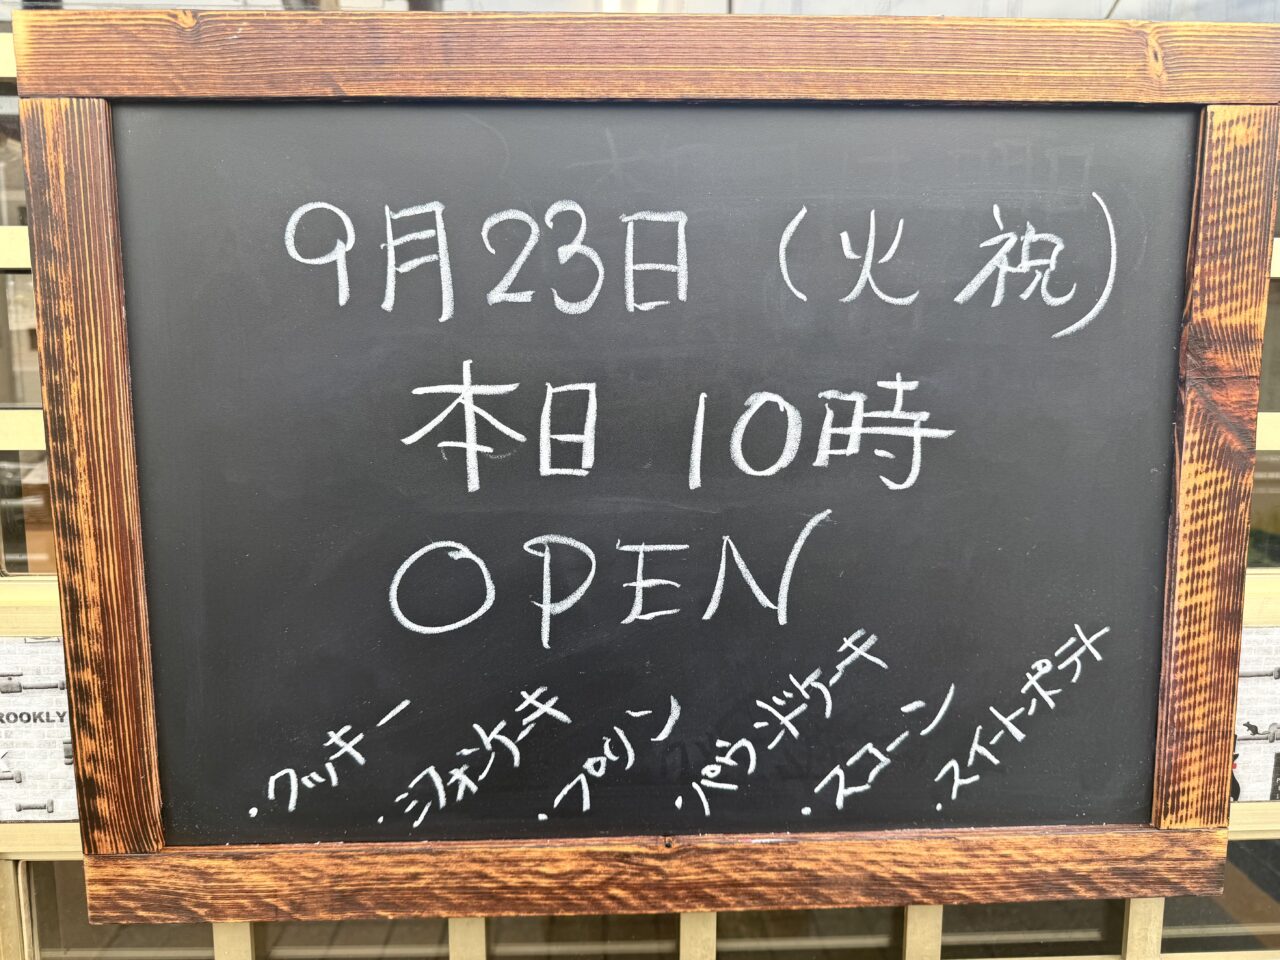 9月23日（火 祝）
本日 10時
OPEN
・クッキー
・シフォンケーキ
・プリン
・パウンドケーキ
・スコーン
・スイートポテト
ROOKLY